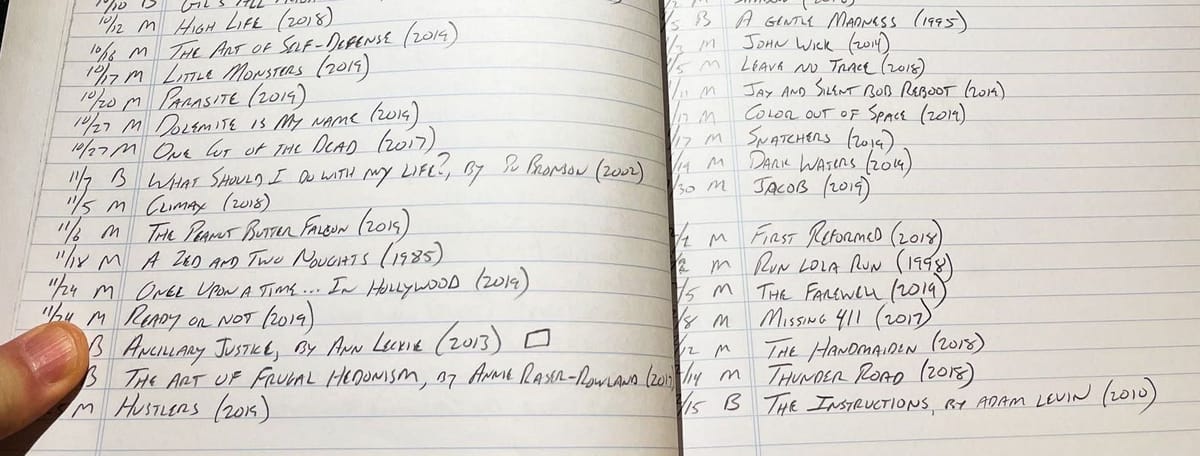 10/12 M HIGH LIFE (2018)
10/16 M THE ART OF SELF-DEFENSE (2019)
10/17 M LITTLE MONSTERS (2019)
10/20 M PARASITE (2019)
10/27 M DOLEMITE IS MY NAME (2019)
10/27 M ONE CUT OF THE DEAD (2017)
11/3 B WHAT SHOULD I DO WITH MY LIFE?, BY PO BRONSON (2002)
11/5 M CLIMAX (2018)
11/6 M THE PEANUT BUTTER FALCON (2019)
11/18 M A ZED AND TWO NOUGHTS (1985)
11/24 M ONCE UPON A TIME... IN HOLLYWOOD (2019)
11/24 M READY OR NOT (2019)
B ANCILLARY JUSTICE, BY ANN LECKIE (2013)
B THE ART OF FRUGAL HEDONISM, BY ANNIE RASER-ROWLAND (2017)
M HUSTLERS (2019)
B A GENTLE MADNESS (1995)
M JOHN WICK (2014)
M LEAVE NO TRACE (2018)
M JAY AND SILENT BOB REBOOT (2019)
M COLOR OUT OF SPACE (2019)
/17 M SNATCHERS (2019)
/19 M DARK WATERS (2019)
/30 M JACOB (2019)
M FIRST REFORMED (2018)
M RUN LOLA RUN (1998)
/5 M THE FAREWELL (2019)
/8 M MISSING 411 (2017)
/12 M THE HANDMAIDEN (2018)
/14 M THUNDER ROAD (2018)
/15 B THE INSTRUCTIONS, BY ADAM LEVIN (2010)